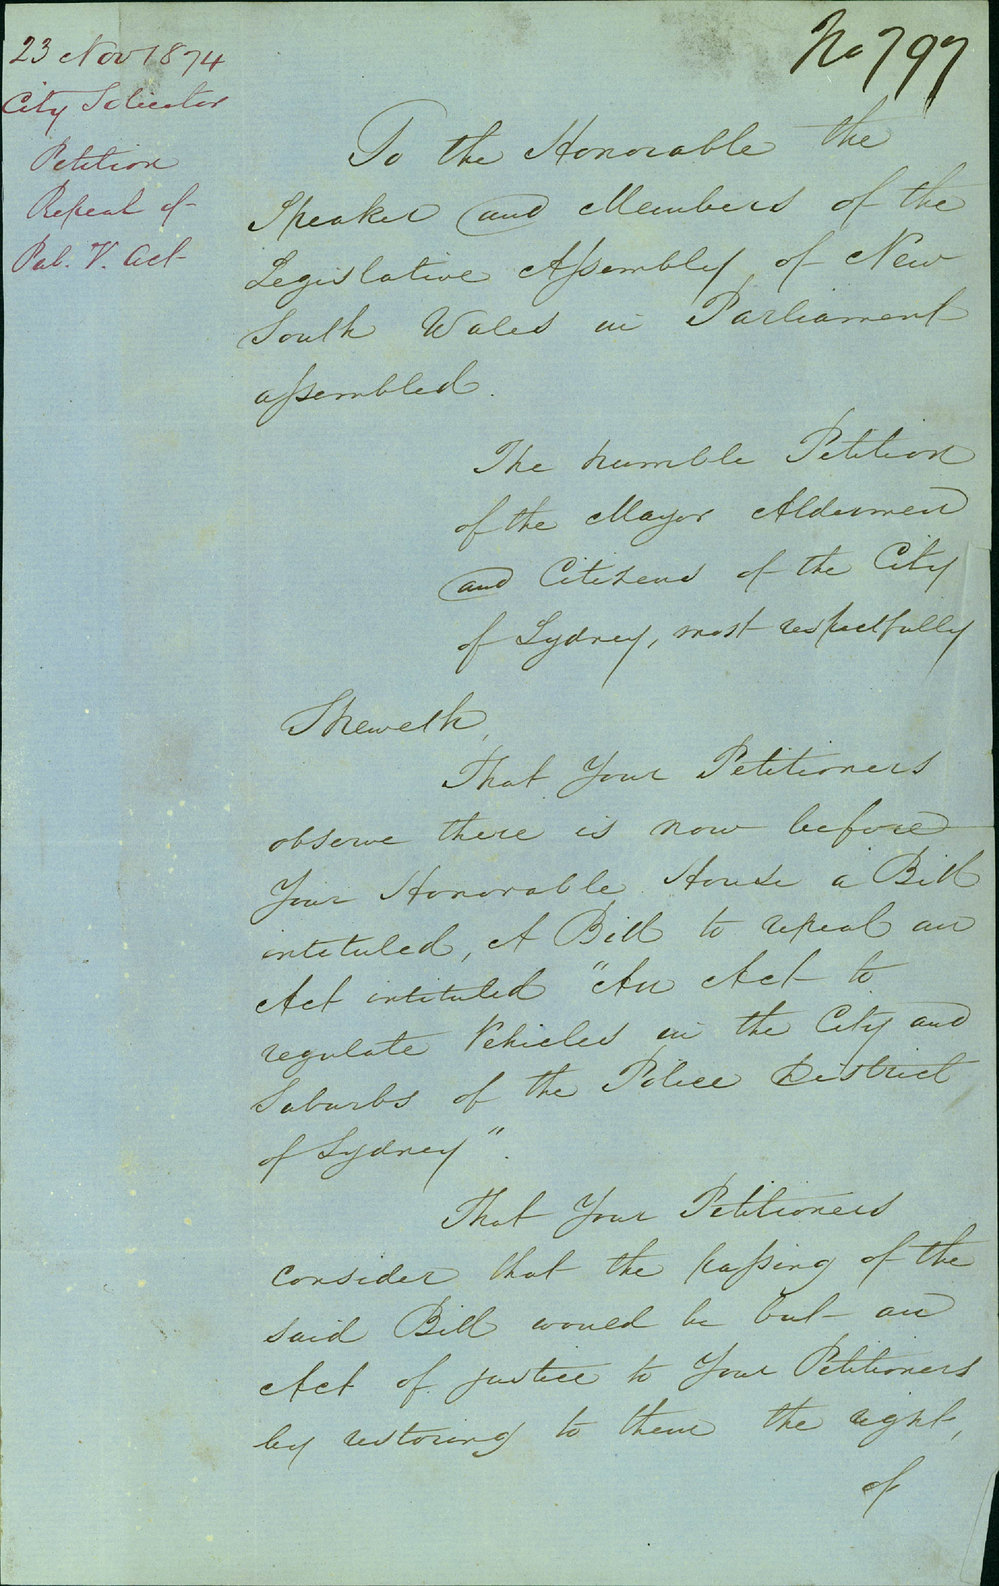 No 797
23 Nov 1874
City Solicitor
Petition
Repeal of
Pub. V. Act
To the Honorable the
Speaker and Members of the
Legislative Assembly of New
South Wales in Parliament
assembled.
The humble Petition
of the Mayor Aldermen
and Citizens of the City
of Sydney, most respectfully
Sheweth,
That Your Petitioners
observe there is now before
Your Honorable House a Bill
intituled, A Bill to repeal an
Act intituled "An Act to
regulate Vehicles in the City and
Suburbs of the Police District
of Sydney".
That Your Petitioners
consider that the passing of the
said Bill would be but an
Act of justice to Your Petitioners
by restoring to them the right,
of